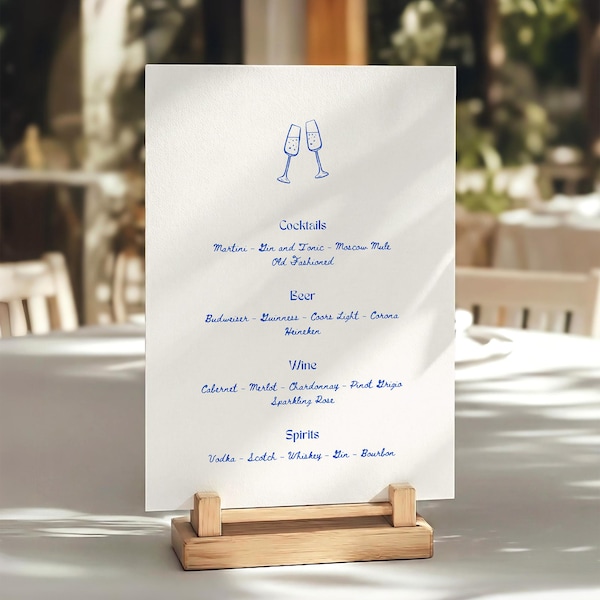 Cocktails
Martini - Gin and Tonic - Moscow Mule
Old Fashioned
Beer
Budweiser - Guinness - Coors Light - Corona
Heineken
Wine
Cabernet - Merlot - Chardonnay - Pinot Grigio
Sparkling Rose
Spirits
Vodka - Scotch - Whiskey - Gin - Bourbon